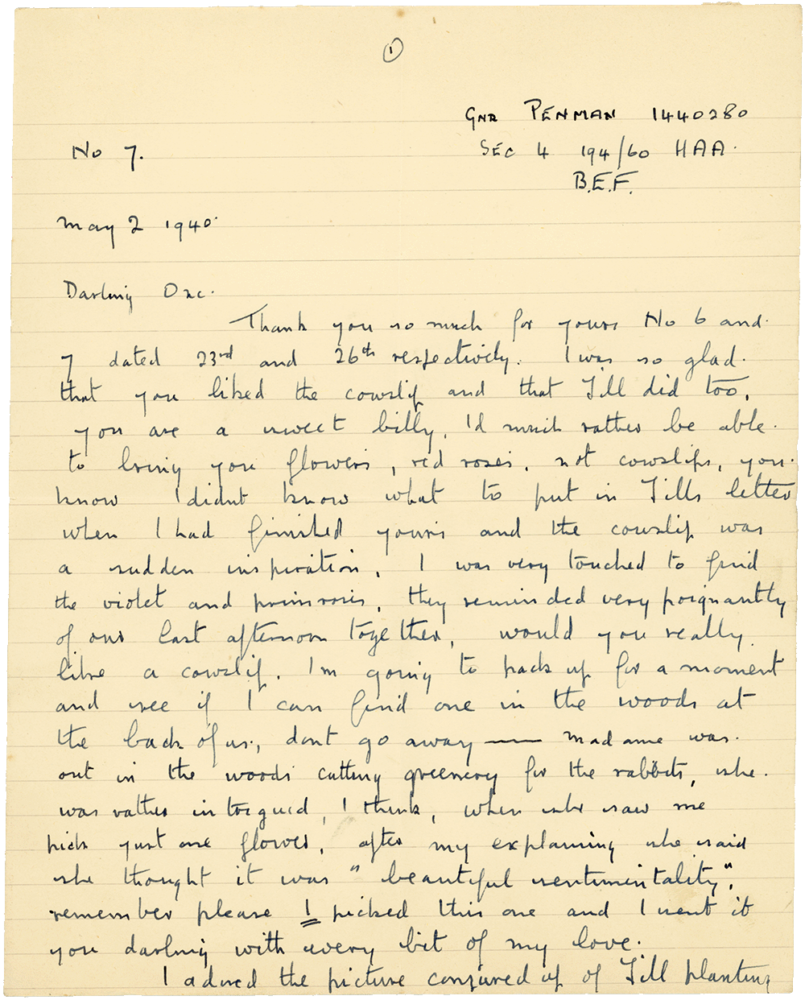 ①
GNR PENMAN 1440280
No 7.
SEC 4 194/60 HAA.
B.E.F.
May 2 1940.
Darling One.
Thank you so much for yours No 6 and
7 dated 23rd and 26th respectively. I was so glad
that you liked the cowslip and that Jill did too,
you are a sweet billy, I'd much rather be able
to bring you flowers, red roses, not cowslips, you
know I didnt know what to put in Jills letter
when I had finished yours and the cowslip was
a sudden inspiration. I was very touched to find
the violet and primroses, they reminded very poignantly
of our last afternoon together, would you really
like a cowslip. I'm going to pack up for a moment
and see if I can find one in the woods at
the back of us, dont go away — Madame was
out in the woods cutting greenery for the rabbits, she
was rather intregued, I think, when she saw me
pick just one flower, after my explaining she said
she thought it was "beautiful sentimentality",
remember please I picked this one and I sent it
you darling with every bit of my love.
I adored the picture conjured up of Jill planting